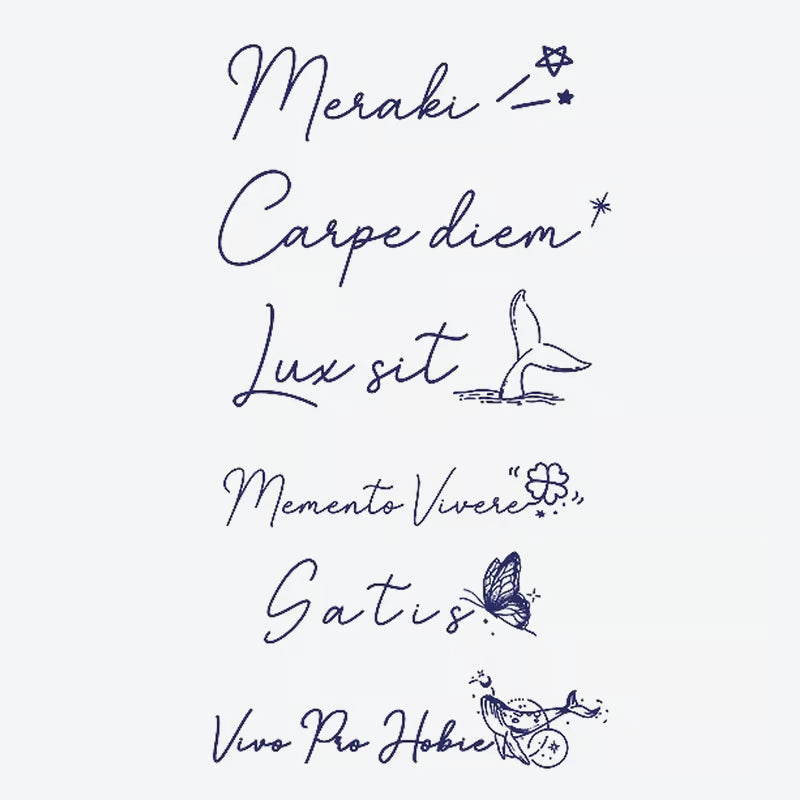 Meraki
Carpe diem
Lux sit
Memento Vivere
Satis
Vivo Pro Hobie